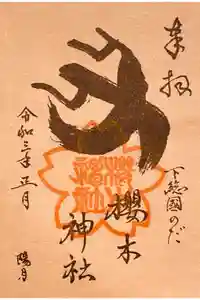 奉拝
下総國のだ
櫻木
神社
令和三年正月
陽月